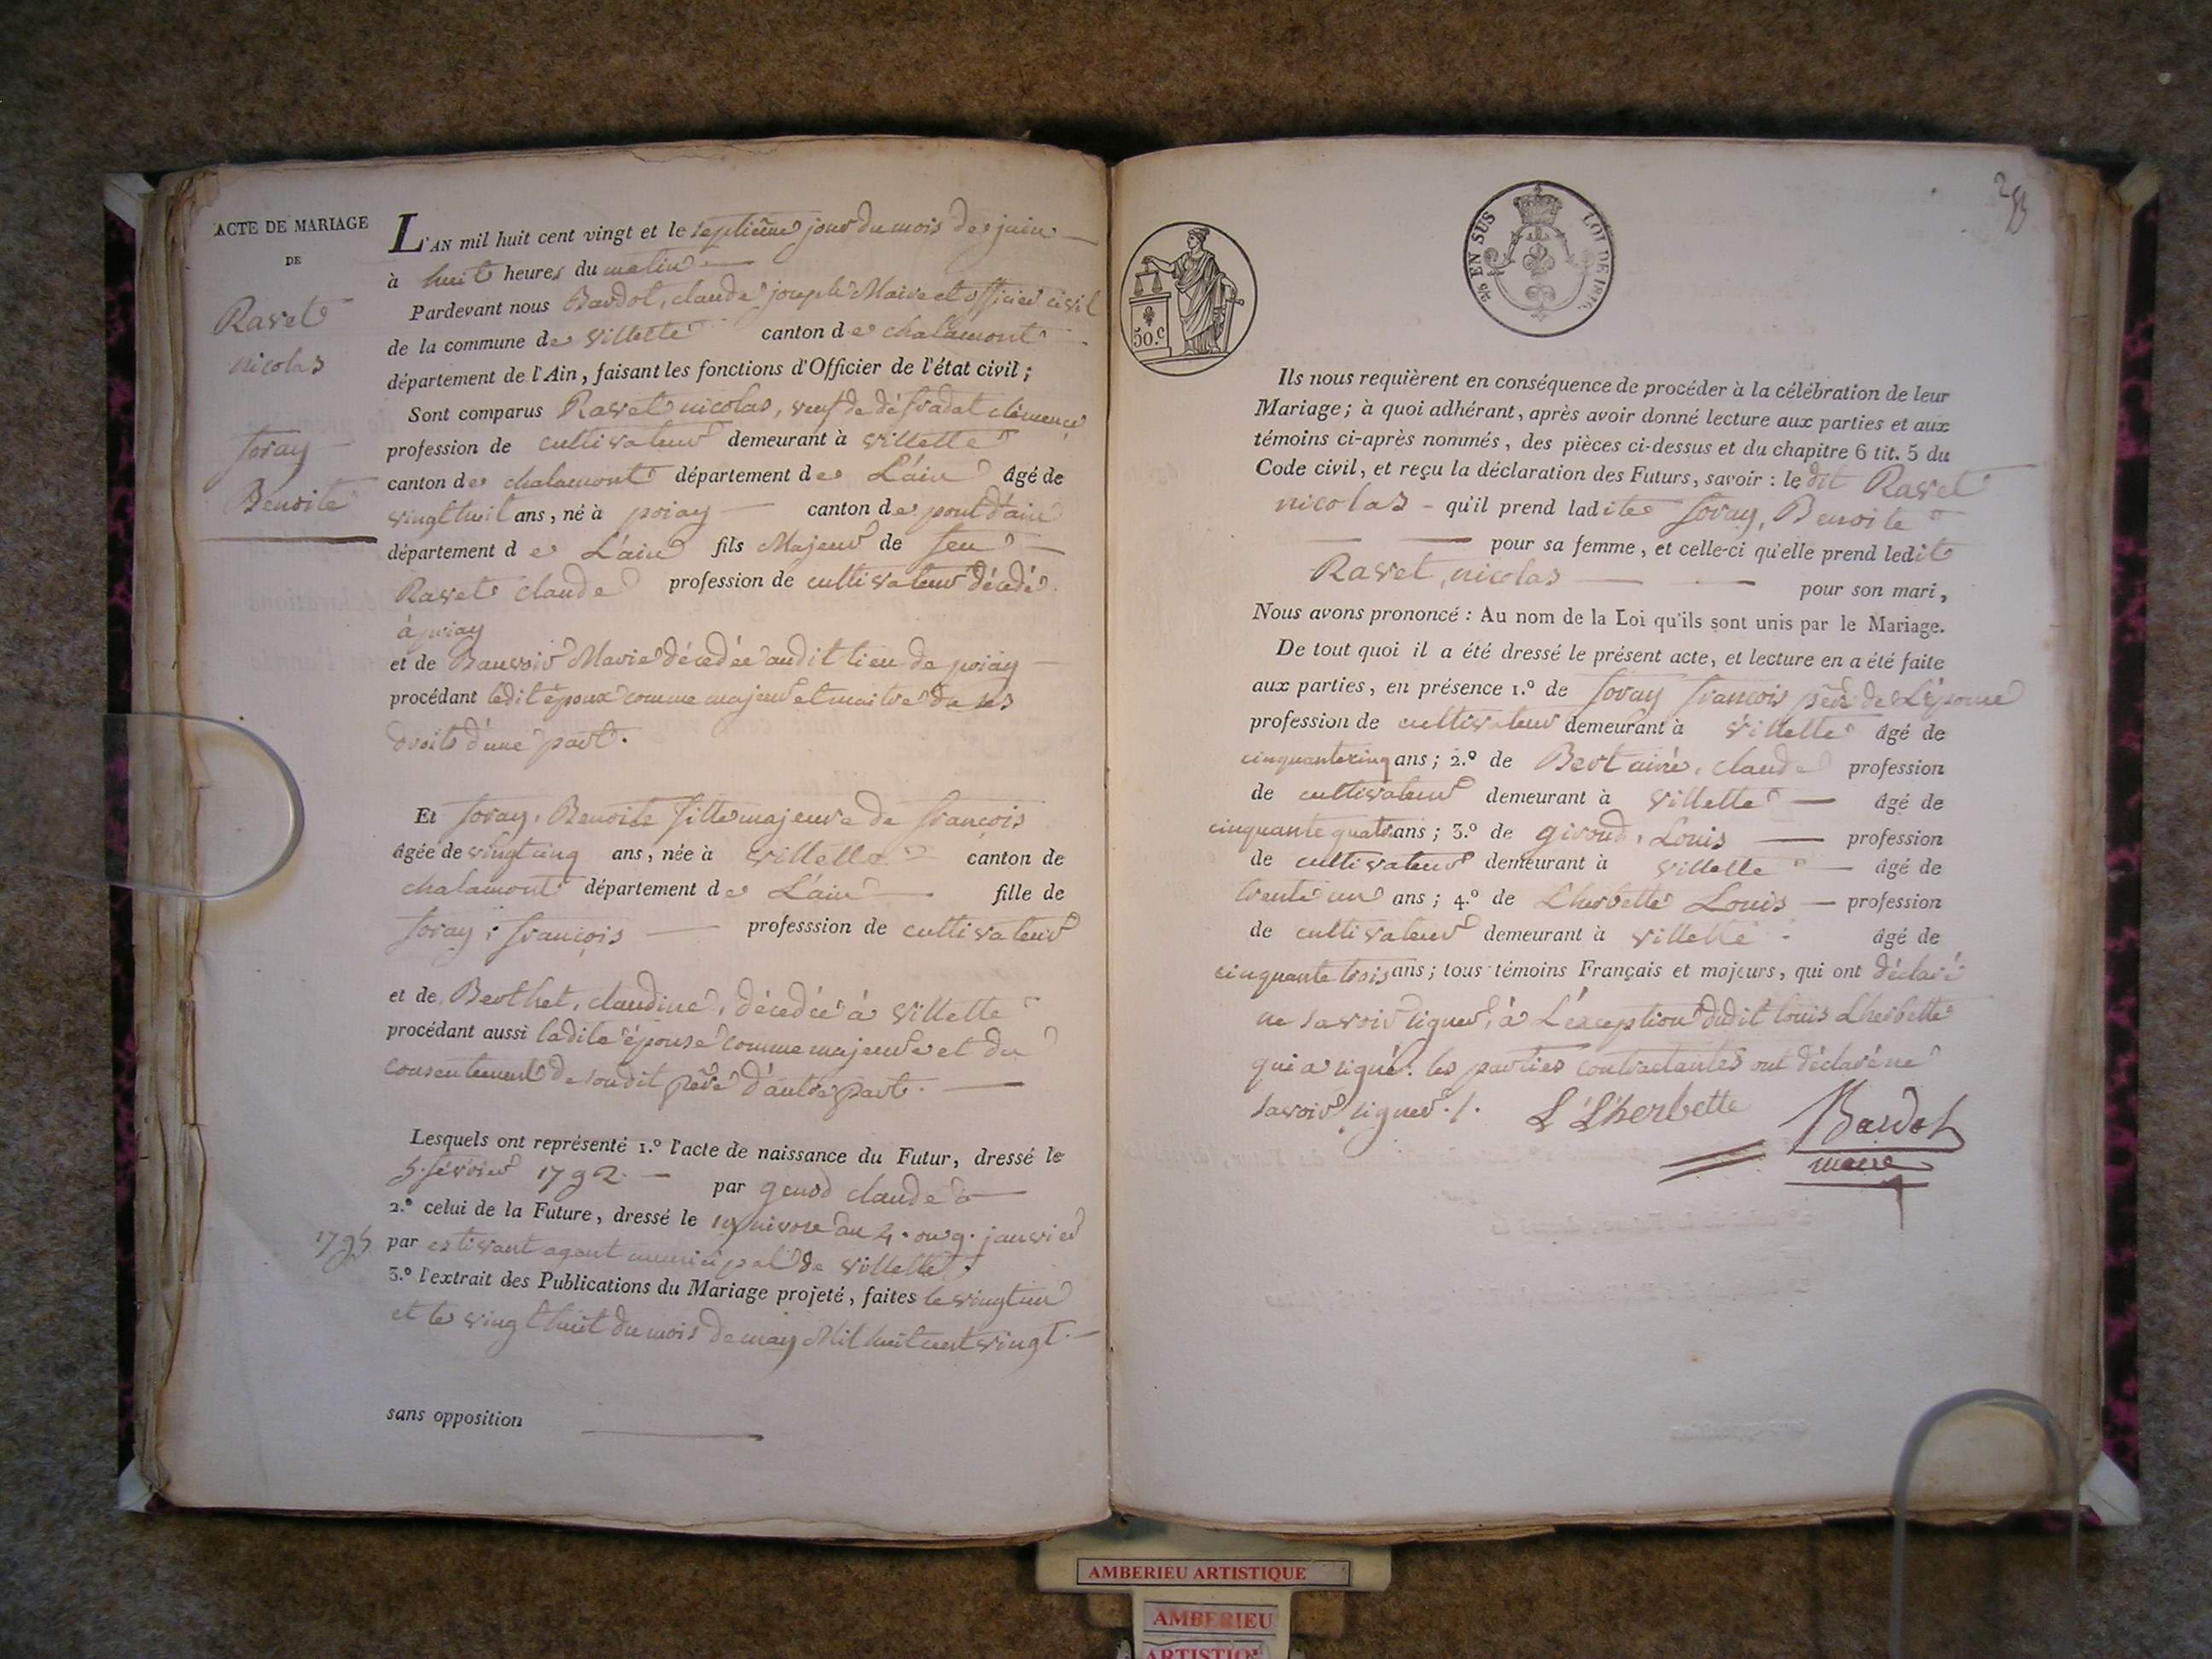 ACTE DE MARIAGE
DE
Ravet
nicolas
foray
Benoite
L'AN mil huit cent vingt et le septième jour du mois de juin
à huit heures du matin
Pardevant nous Bardot, claude joseph Maire et officier civil
de la commune de villette canton de chalamont
département de l'Ain, faisant les fonctions d'Officier de l'état civil;
Sont comparus Ravet nicolas, veuf de défradat clémence
profession de cultivateur demeurant à villette
canton de chalamont département de L'ain âgé de
vingt huit ans, né à poiay canton de pont d'ain
département de L'ain fils Majeur de feu
Ravet claude profession de cultivateur décédé
à priay
et de Bauvoir Marie décédée audit lieu de priay
procédant ledit époux comme majeur et maitre de ses
droits d'une part.
Et foray, Benoite fille majeure de françois
âgée de vingt cinq ans, née à villette canton de
chalamont département de L'ain fille de
foray, françois professsion de cultivateur
et de Berthet, claudine, décédée à villette
procédant aussi ladite épouse comme majeure et du
consentement de sondit père d'autre part.
Lesquels ont représenté 1.º l'acte de naissance du Futur, dressé le
5 février 1792 par genod claude
2.º celui de la Future, dressé le 19 nivose an 4. ou 9. janvier
1795 par estivant agent municipal de villette
3.º l'extrait des Publications du Mariage projeté, faites le vingt un
et le vingt huit du mois de may Mil huit cent vingt.
sans opposition
50.c
2/5 EN SUS LOI DE 1816.
Ils nous requièrent en conséquence de procéder à la célébration de leur
Mariage; à quoi adhérant, après avoir donné lecture aux parties et aux
témoins ci-après nommés, des pièces ci-dessus et du chapitre 6 tit. 5 du
Code civil, et reçu la déclaration des Futurs, savoir: le dit Ravet
nicolas - qu'il prend ladite foray, Benoite
pour sa femme, et celle-ci qu'elle prend ledit
Ravet, nicolas pour son mari,
Nous avons prononcé: Au nom de la Loi qu'ils sont unis par le Mariage.
De tout quoi il a été dressé le présent acte, et lecture en a été faite
aux parties, en présence 1.º de foray françois père de L'épouse
profession de cultivateur demeurant à villette âgé de
cinquante cinq ans; 2.º de Bert ainé, claude profession
de cultivateur demeurant à villette âgé de
cinquante quatre ans; 3.º de giroud, Louis profession
de cultivateur demeurant à villette âgé de
trente un ans; 4.º de Lherbette Louis profession
de cultivateur demeurant à villette âgé de
cinquante trois ans; tous témoins Français et majeurs, qui ont déclaré
ne savoir signer, à L'éxception dudit louis Lherbette
qui a signé. les parties contractantes ont déclaré ne
savoir signer ./. L Lherbette Bardot
maire
AMBERIEU ARTISTIQUE
AMBERIEU
ARTISTIQUE